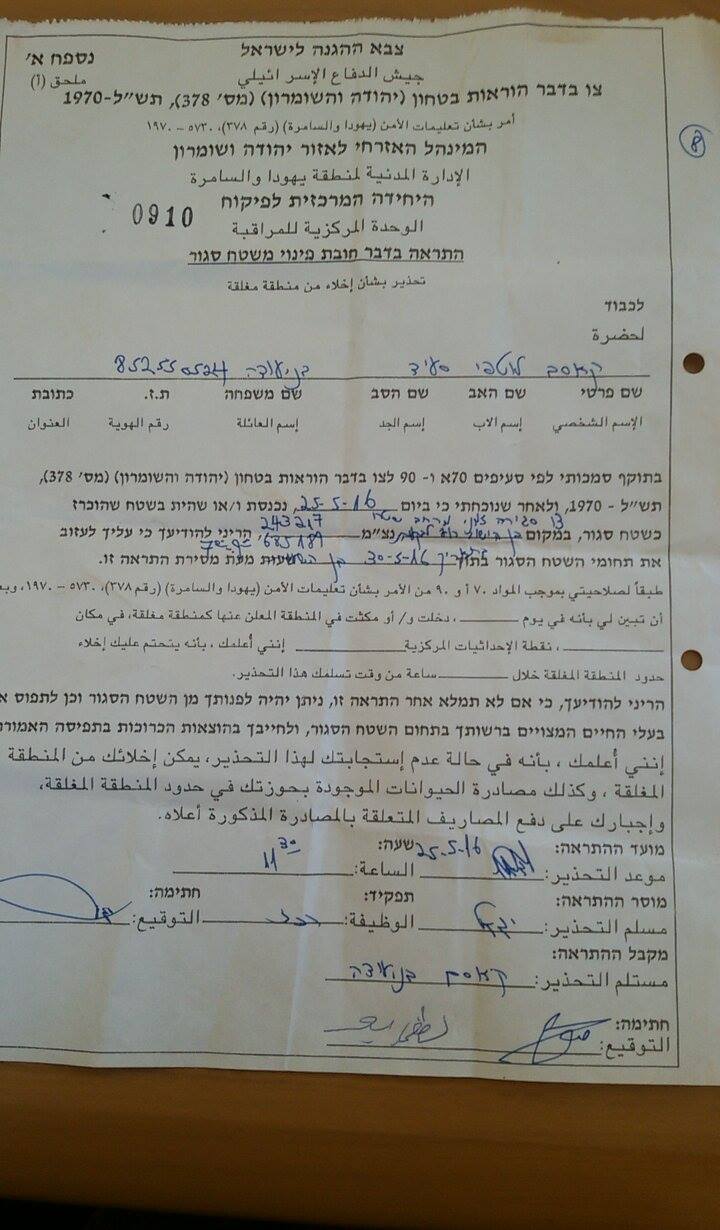 צבא ההגנה לישראל
נספח א'
جيش الدفاع الإسرائيلي
ملحق (أ)
צו בדבר הוראות בטחון (יהודה והשומרון) (מס' 378), תש"ל-1970
أمر بشأن تعليمات الأمن (يهودا والسامرة) (رقم ٣٧٨)، ٥٧٣٠ – ١٩٧٠
8
המינהל האזרחי לאזור יהודה ושומרון
الإدارة المدنية لمنطقة يهودا والسامرة
היחידה המרכזית לפיקוח
0910
الوحدة المركزية للمراقبة
התראה בדבר חובת פינוי משטח סגור
تحذير بشأن إخلاء من منطقة مغلقة
לכבוד
لحضرة
קאסם לוטפי סעיד בני עודה 852550524
שם פרטי שם האב שם הסב שם משפחה ת.ז. כתובת
الإسم الشخصي إسم الاب إسم الجد إسم العائلة رقم الهوية العنوان
בתוקף סמכותי לפי סעיפים 70א ו- 90 לצו בדבר הוראות בטחון (יהודה והשומרון) (מס' 378),
תש"ל - 1970, ולאחר שנוכחתי כי ביום 25-5-16, נכנסת ו/או שהית בשטח שהוכרז
243217
כשטח סגור, במקום נצ"מ 685189 הריני להודיעך כי עליך לעזוב
את תחומי השטח הסגור בתוך 30-5-16 שעות מעת מסירת התראה זו.
طبقاً لصلاحيتي بموجب المواد ٧٠أ و ٩٠ من الأمر بشأن تعليمات الأمن (يهودا والسامرة) (رقم ٣٧٨)، ٥٧٣٠ – ١٩٧٠،
أن تبين لي بأنه في يوم ، دخلت و/ أو مكثت في المنطقة المعلن عنها كمنطقة مغلقة، في مكان
، نقطة الإحداثيات المركزية إنني أعلمك، بأنه يتحتم عليك إخلاء
حدود المنطقة المغلقة خلال ساعة من وقت تسلمك هذا التحذير.
הריני להודיעך, כי אם לא תמלא אחר התראה זו, ניתן יהיה לפנותך מן השטח הסגור וכן לתפוס
בעלי החיים המצויים ברשותך בתחום השטח הסגור, ולחייבך בהוצאות הכרוכות בתפיסה האמורה
إنني أعلمك ، بأنه في حالة عدم إستجابتك لهذا التحذير، يمكن إخلائك من المنطقة
المغلقة ، وكذلك مصادرة الحيوانات الموجودة بحوزتك في حدود المنطقة المغلقة،
وإجبارك على دفع المصاريف المتعلقة بالمصادرة المذكورة أعلاه.
מועד ההתראה: 25-5-16 שעה: 11 30
موعد التحذير: الساعة:
מוסר ההתראה: תפקיד: חתימה:
مسلم التحذير: الوظيفة: التوقيع:
מקבל ההתראה:
مستلم التحذير: קאסם בני עודה
חתימה:
التوقيع: